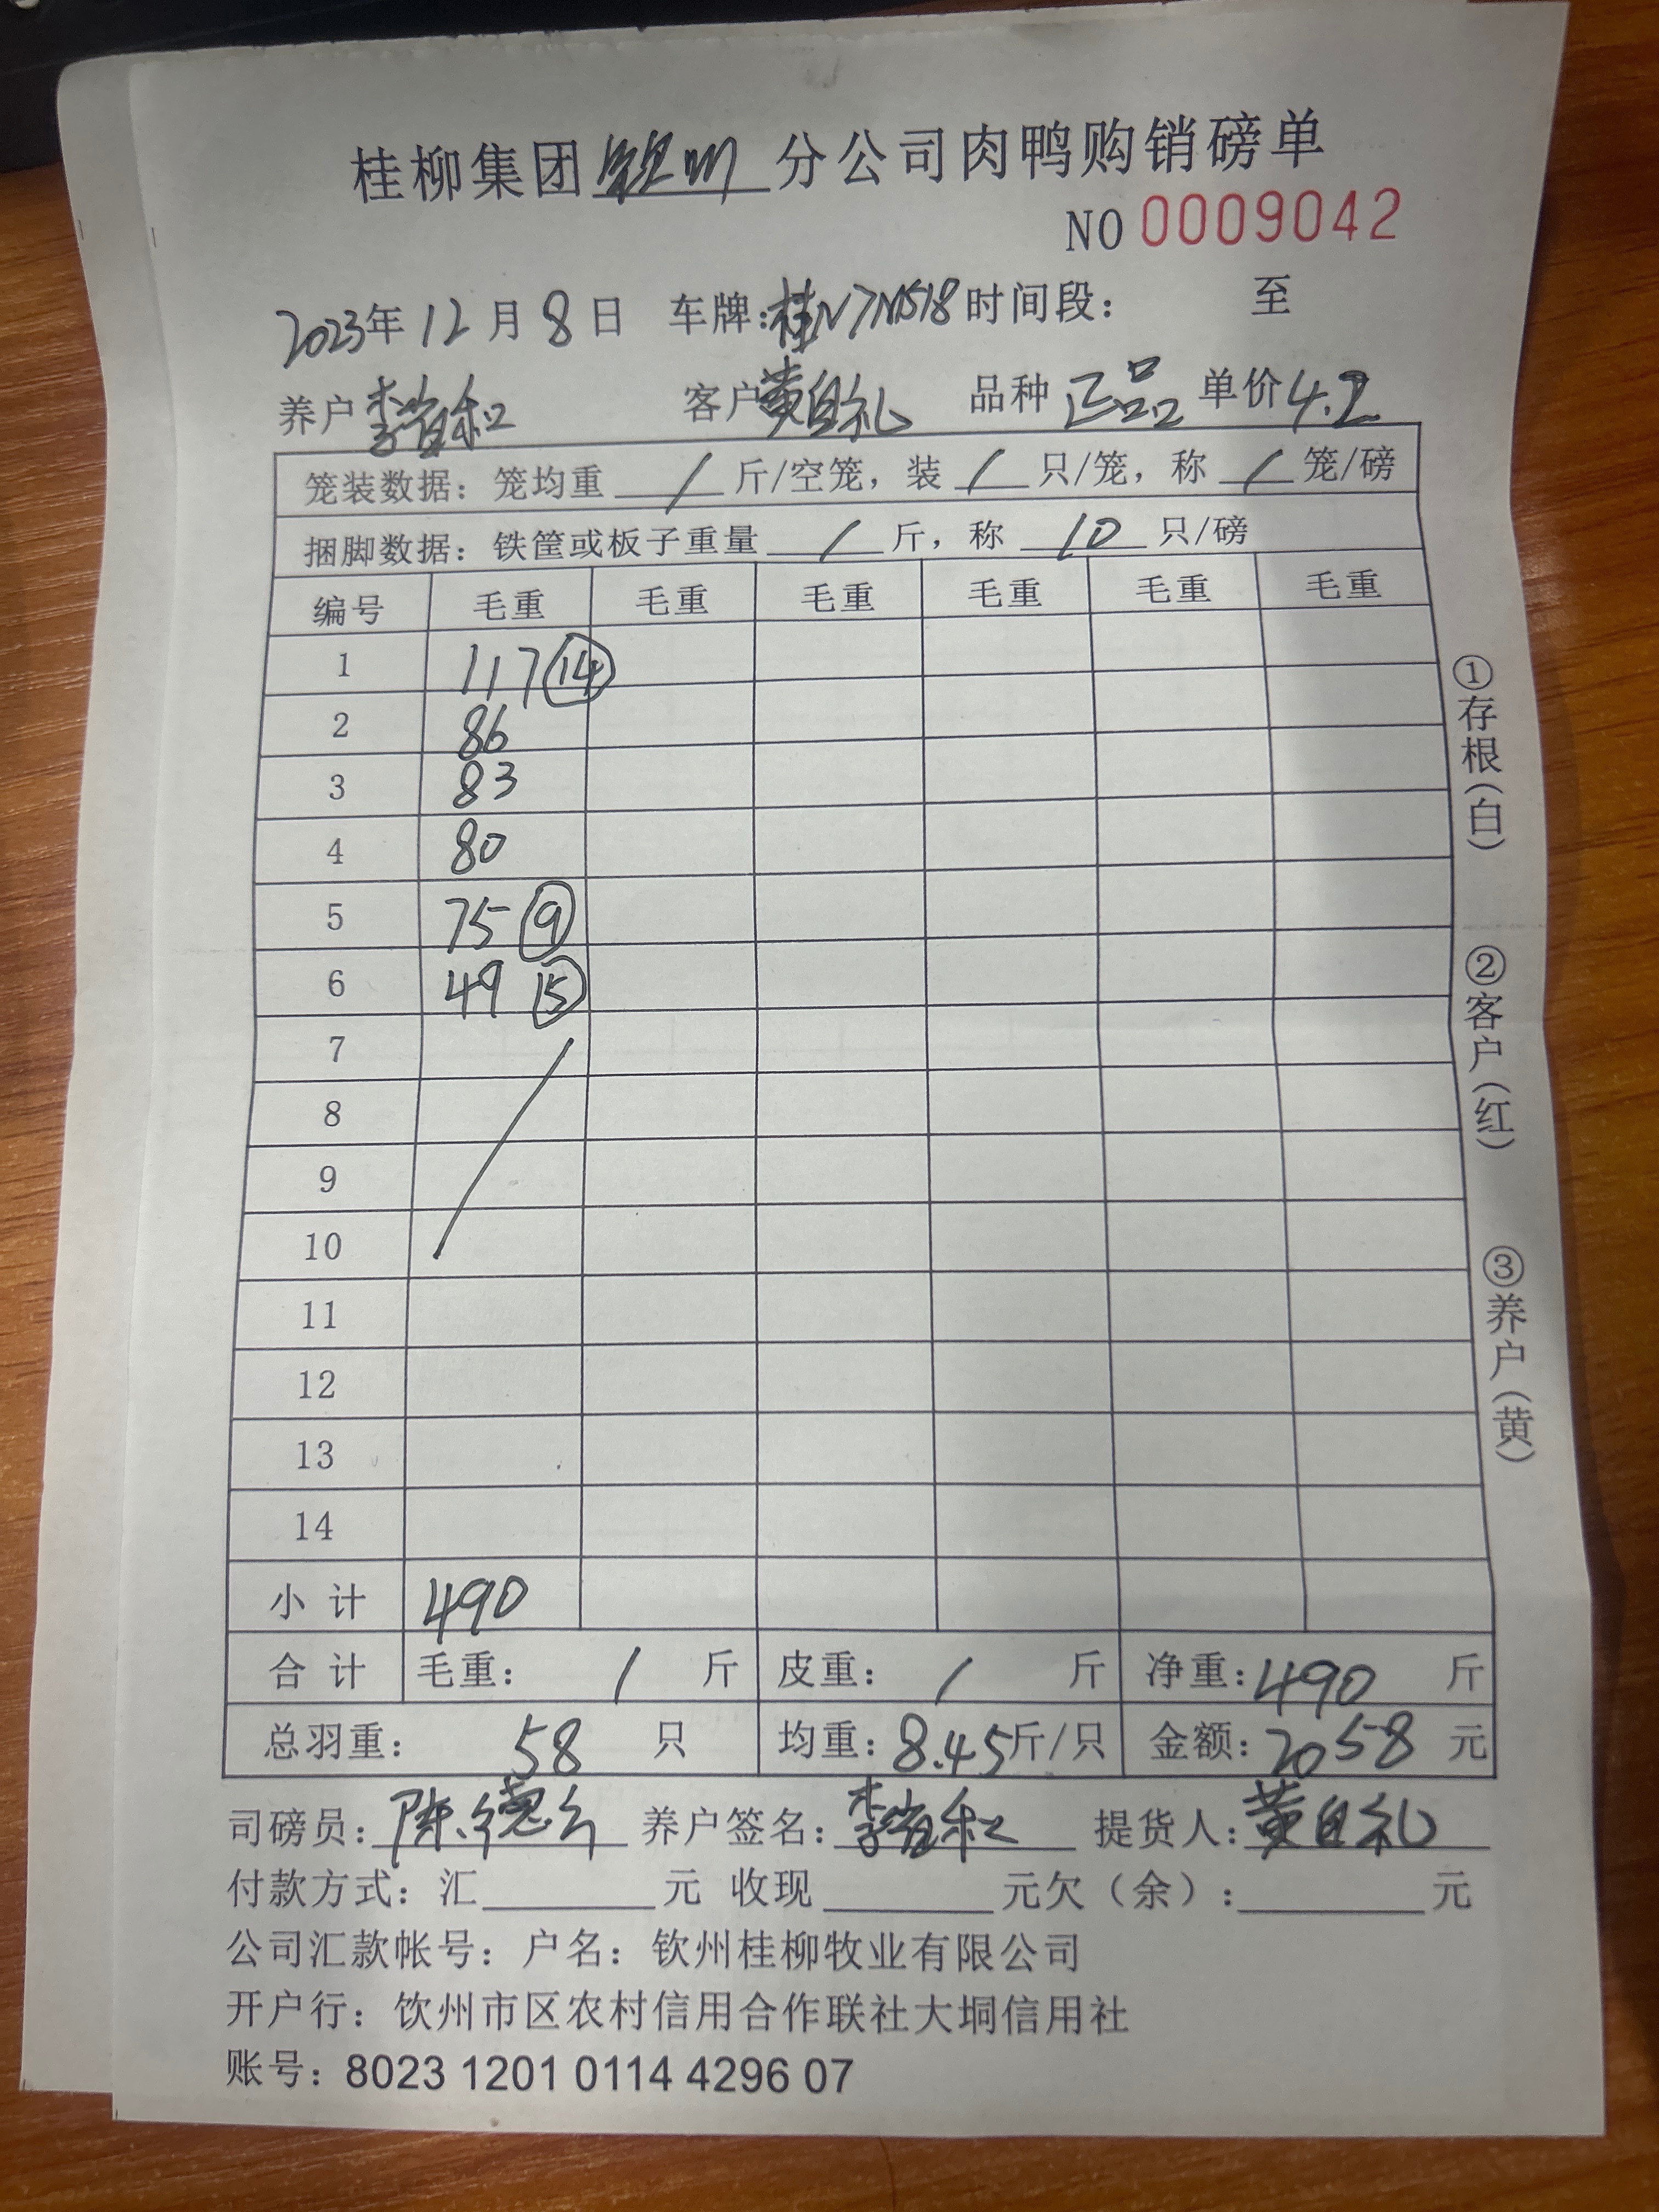 桂柳集团钦州分公司肉鸭购销磅单
NO 0009042
2023年12月8日 车牌:桂N7N518时间段: 至
养户李 和 客户黄自礼 品种 正品 单价4.2
笼装数据: 笼均重 / 斤/空笼, 装 / 只/笼, 称 / 笼/磅
捆脚数据: 铁筐或板子重量 / 斤, 称 10 只/磅
编号 毛重 毛重 毛重 毛重 毛重 毛重
1 117 ⑭
2 86
3 83
4 80
5 75 ⑨
6 49 ⑮
7
8
9
10
11
12
13
14
小计 490
合计 毛重: / 斤 皮重: / 斤 净重:490 斤
总羽重: 58 只 均重:8.45斤/只 金额:2058 元
司磅员:陈德 养户签名:李 和 提货人:黄自礼
付款方式: 汇 元 收现 元欠(余): 元
公司汇款帐号: 户名: 钦州桂柳牧业有限公司
开户行: 饮州市区农村信用合作联社大垌信用社
账号: 8023 1201 0114 4296 07
①存根(白)
②客户(红)
③养户(黄)